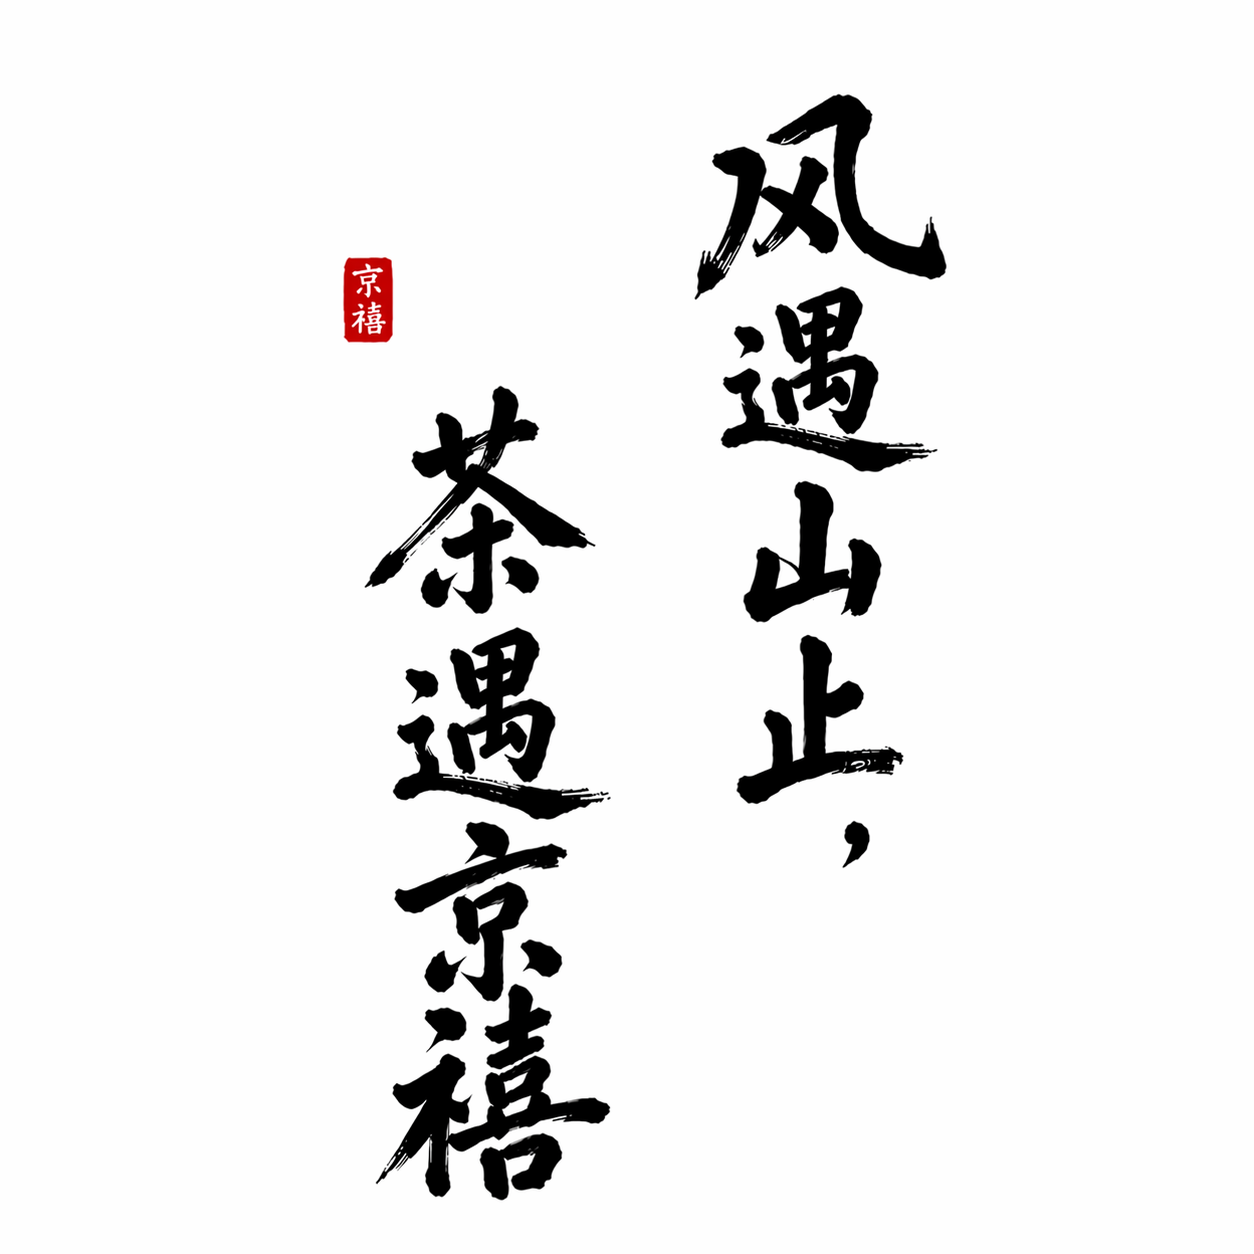 风遇山止，
茶遇京禧
京禧